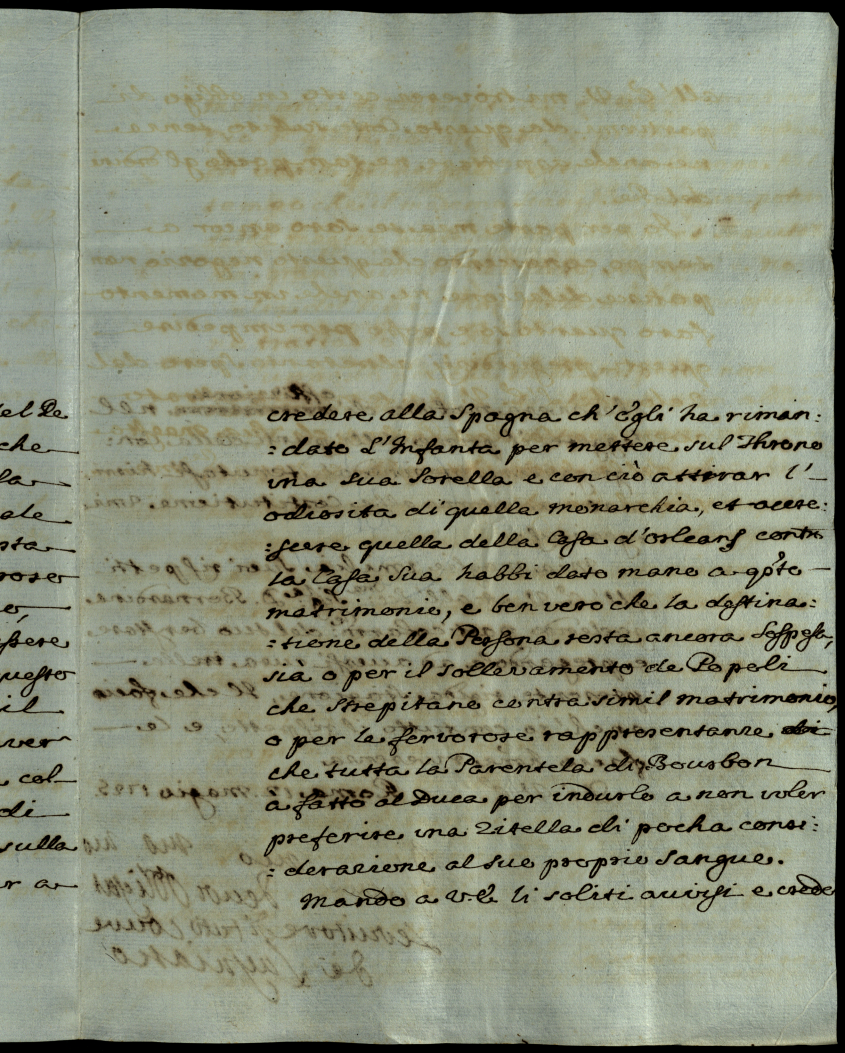 el Re
che
la
ale
sta
roso
o,
essere
questo
il
ver
col
di
sulla
r a
credere alla Spagna ch'egli ha riman:
:dato L'Infanta per mettere sul Throno
una sua sorella e con ciò attirar l'
odiosita di quella monarchia, et accre:
:scere quella della Casa d'orleans contro
la Casa sua habbi dato mano a qṡto
matrimonio, e ben vero che la destina:
:tione della Persona resta ancora sospesa,
sia o per il sollevamento de Popoli
che strepitano contra simil matrimonio,
o per le fervorose rappresentanze
che tutta la Parentela di Bourbon
a fatto al Duca per indurlo a non voler
preferire una Zitella di pocha consi:
:derazione al suo proprio sangue.
Mando a V.E. li soliti avvisi e crede